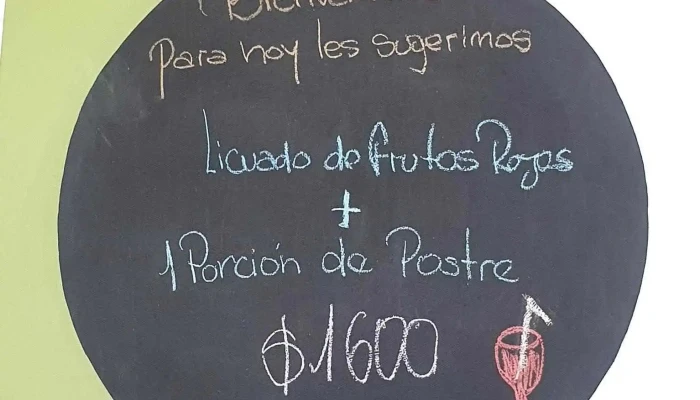 Para hoy les sugerimos
Licuado de frutas Rojas
+
1 Porción de Postre
$1600